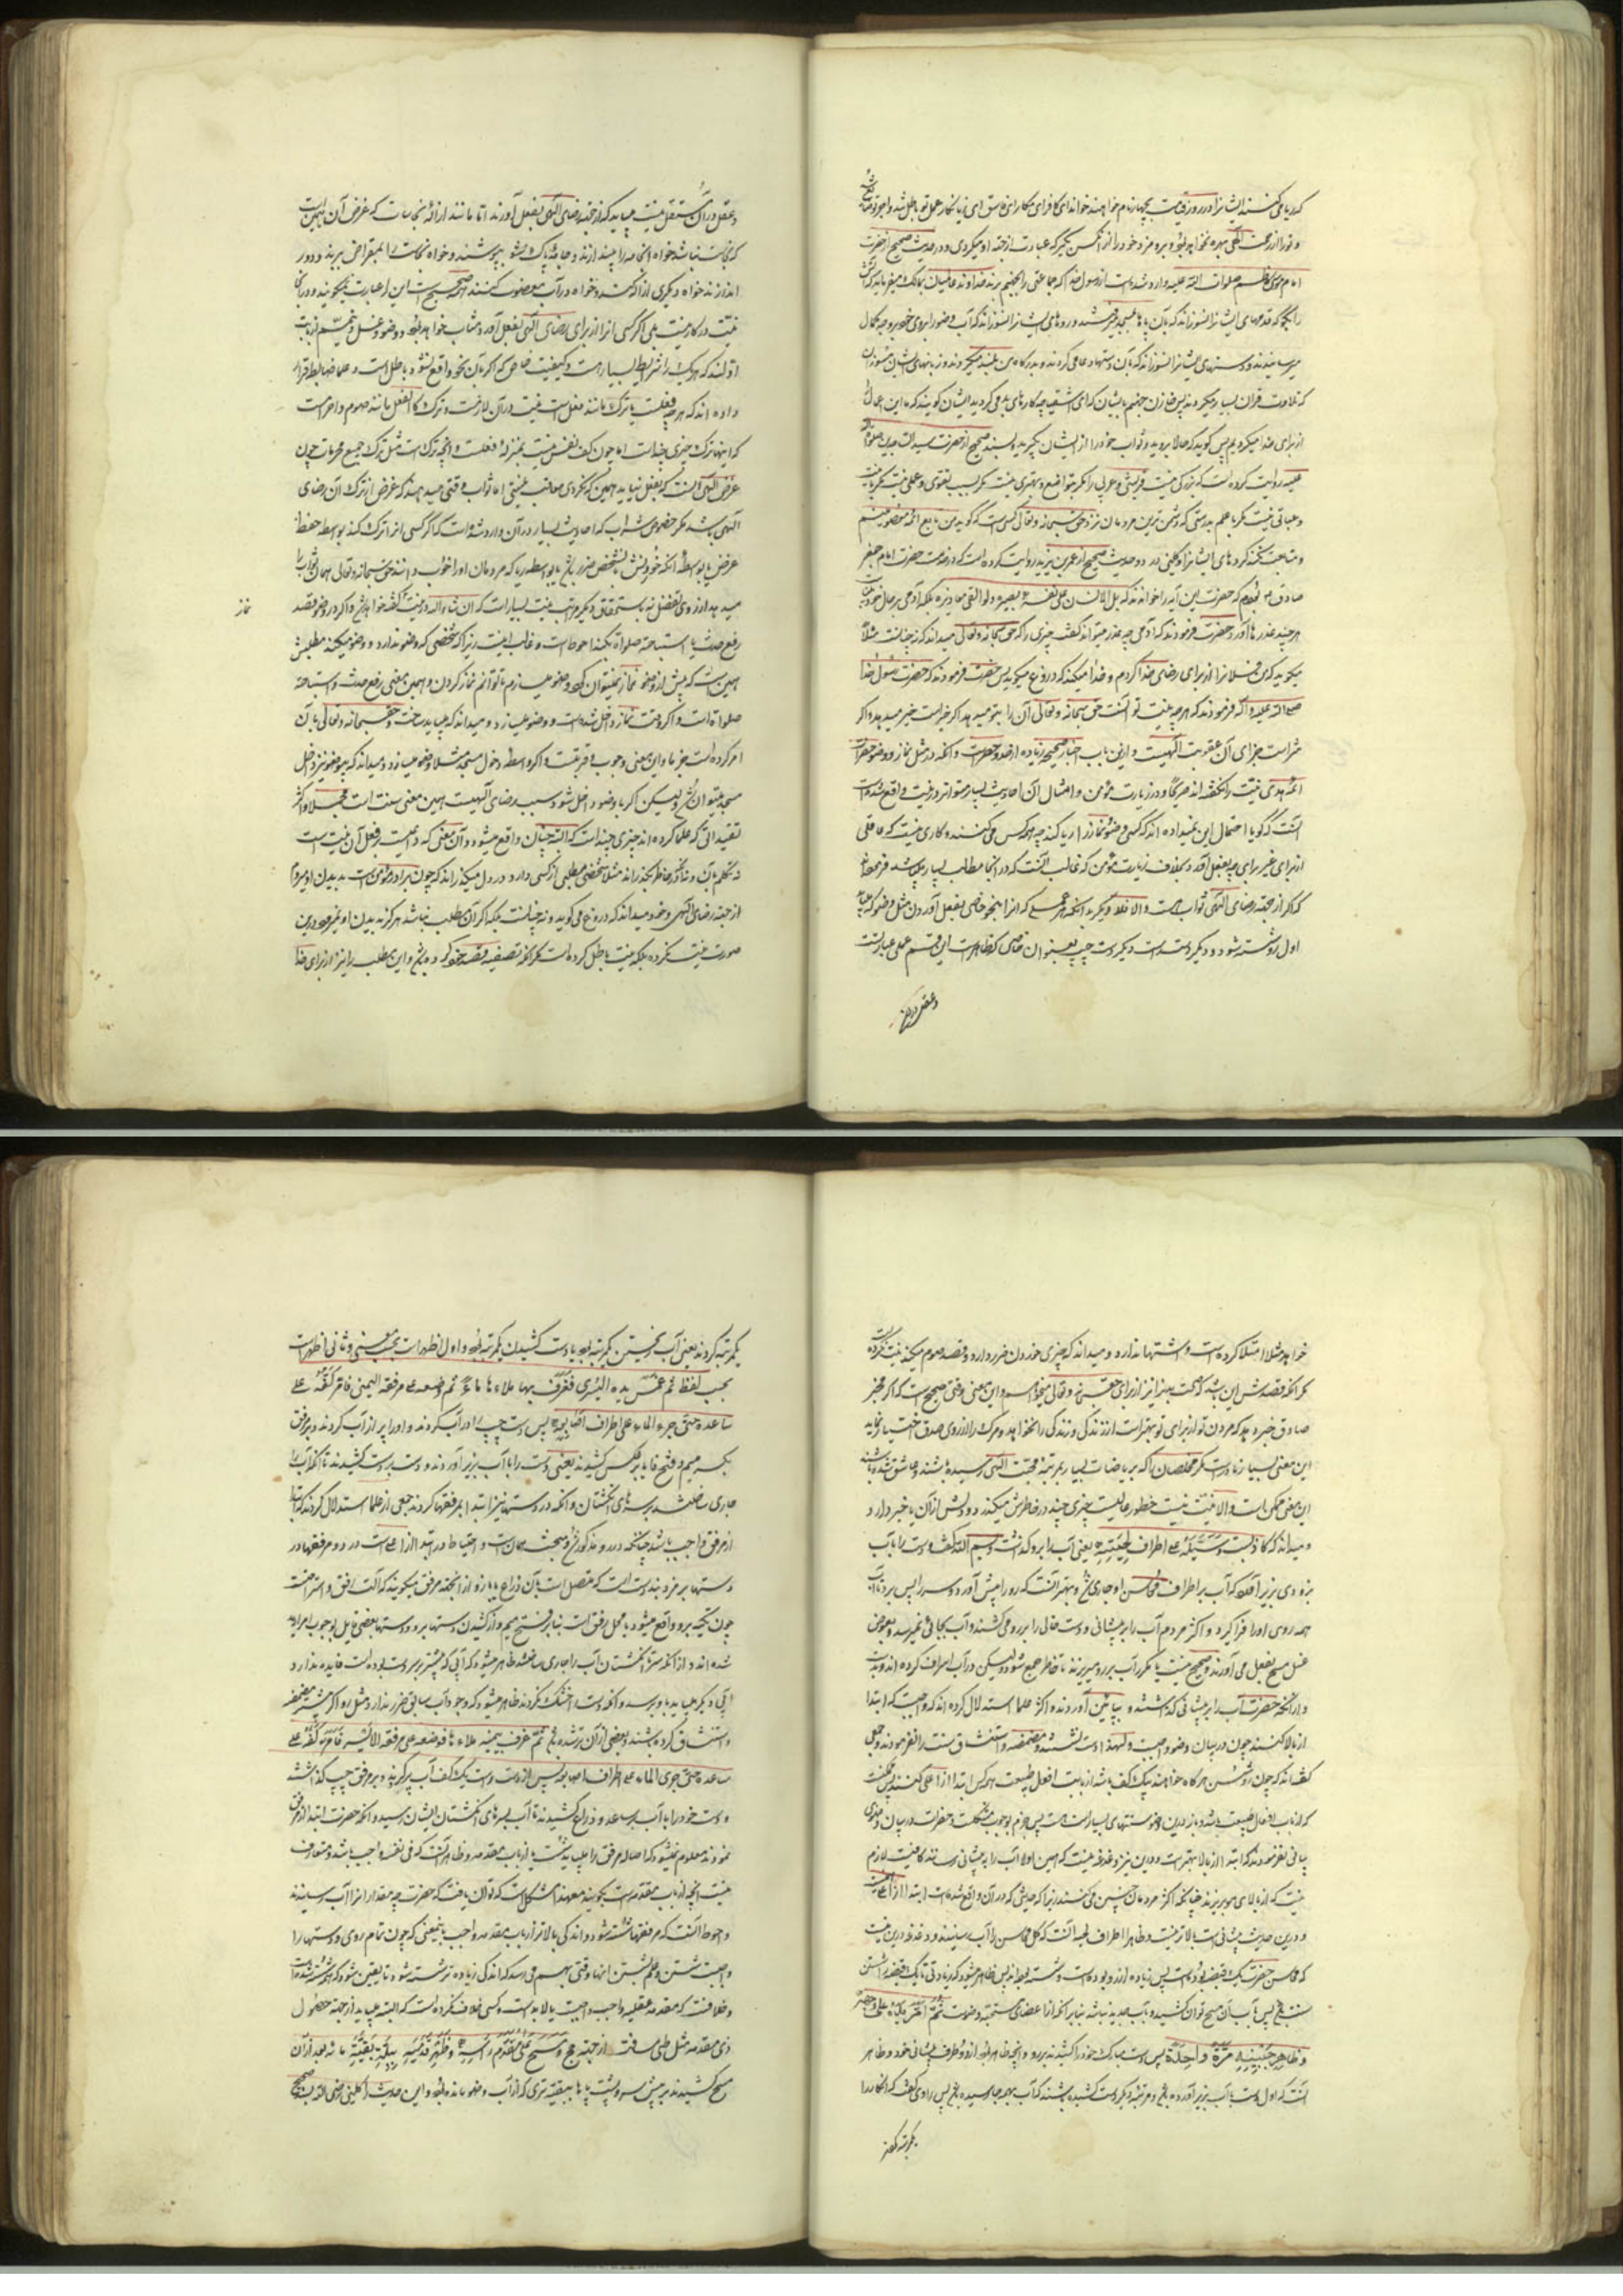 که ریا می‌کنند ایشانرا در روز قیامت بچهار نام خواهند خواند ای کافر ای مکار ای فاسق ای زیانکار عمل تو باطل شد و اجر تو ضایع شد
و تو را از رحمت الهی بهره نخواهد بود برو مزد خود را از آنکس بگیر که عبادت از جهة او میکردی و در حدیث صحیح از حضرت
امام موسی کاظم صلوات الله علیه وارد شده است از رسول خدا که جماعتی را بجهنم برند خداوند عالمیان بمالک میفرماید که آتش
را بگو که قدمهای ایشانرا نسوزاند که بآن پاها بمسجد میرفتند و روهای ایشانرا نسوزاند که آب وضو را بروی خود بر وجه کمال
میرسانیدند و دستهای ایشانرا نسوزاند که بآن دستها دعا می کردند و بدرگاه من بلند میکردند و زبانهای ایشان نسوزان
که تلاوت قرآن بسیار میکردند پس خازن جهنم بایشان گوید ای اشقیا چه کارهای بد می کردید ایشان گویند که ما این اعمال
از برای خدا نمیکردیم پس گوید که حالا بروید و ثواب خود را از ایشان بگیرید و بسند صحیح از حضرت سید الساجدین صلوات الله
علیه روایت کرده است که بزرگی نیست قرشی و عربی را مگر بتواضع و بهتری نیست مگر بسبب تقوی و عملی نیست مگر با نیت
و عبادتی نیست مگر با علم بدرستی که دشمن ترین مردمان نزد حق سبحانه و تعالی کسی است که گوید من تابع ائمه معصومینم
و متابعت نکند کردهای ایشانرا و کلینی در دو حدیث صحیح از عمر بن یزید روایت کرده است که در خدمت حضرت امام جعفر
صادق ع بودم که حضرت این آیه را خواندند که بل الانسان علی نفسه بصیرة ولو القی معاذیره بلکه آدمی بر حال خود بیناست
هر چند عذرها آورد حضرت فرمودند که آدمی چه عذر میتواند گفت چیزی را که حق سبحانه و تعالی میداند که نه چنانست مثلا
میگوید که من فلانرا از برای رضای خدا کردم و خدا میداند که دروغ میگوید پس حضرت فرمودند که حضرت رسول خدا
صلی الله علیه و آله فرمودند که هر چه نیت تو آنست حق سبحانه و تعالی آن را بتو میدهد اگر خیر است خیر میدهد و اگر
شر است جزای آن عقوبت الهیست و ازین باب اخبار صحیحه زیاده از حد و حصر است و آنکه در مثل نماز و وضو حضرات
ائمه هدی نیت را نگفته اند صریحا و در زیارت مؤمن و امثال آن احادیث بسیار متواتر در نیت واقع شده است
آنست که گویا احتمال این نمیداده اند که کسی وضو و نماز را ریا کند چه همه کس می کنند و کاری نیست که عاقلی
از برای غیر برای چه بفعل آورد بخلاف زیارت مؤمن که غالب آنست که در آنجا مطالب بسیار میباشد فرموده اند
که اگر از جهة رضای الهی ثوابست و الا فلا و دیگر بدانکه هر عملی که آنرا بنحو خاصی بفعل آوردن مثل وضو که میباید
اول رو شسته شود و دیگر دست راست و دیگر دست چپ بعنوان خاصی که ظاهر است این قسم عملی عبادتست
و عقل در آن
و عقل در آن مستقل نیست میباید که از جهة رضای الهی بفعل آورند اما مانند ازاله نجاسات که غرض آن همین است
که نجاست نباشد خواه آن جامه را بیندازند و جامهٔ پاک بپوشند و خواه نجاست را بمقراض ببرند و دور
اندازند خواه دیگری ازاله کند و خواه در آب مغصوب کنند همه صحیح است این را عبادت نمیگویند و در آن
نیت درکار نیست بلی اگر کسی آنرا از برای رضای الهی بفعل آورد مثاب خواهد بود و وضو و غسل و تیمم از بابت
اولند که هر یک را شرایط بسیار هست و کیفیت خاص که اگر بآن نحو واقع نشود باطل است و علما ضابطه قرار
داده اند که هر چه فعلست یا ترک یا مانند فعل است نیت در آن لازمست و ترک کالفعل مانند صوم و احرامست
که اینها ترک چیزی چند است اما چون کف نفس نیست بمنزلهٔ فعلست و آنچه ترک است مثل ترک جمیع محرمات چون
غرض الهی آنست که بفعل نیاید همین که نکردی معاقب نیستی اما ثواب وقتی میدهند که غرض از ترک آن رضای
الهی باشد مگر خصوص شراب که احادیث بسیار در آن وارد شده است که اگر کسی آنرا ترک کند بواسطه حفظ
عرض یا بواسطهٔ آنکه خوردنش بشخص ضرر باشد یا بواسطه ریا که مردمان او را خوب دانند حق سبحانه و تعالی بهمان ثواب
میدهد از روی تفضل نه باستحقاق و دیگر مراتب نیت بسیار است که ان شاء الله در نیت گفته خواهد شد و اگر در وضو قصد
نماز
رفع حدث یا استباحه صلوات بکند احوط است و غالب اینست زیرا که شخصی که وضو ندارد و وضو میکند مطلبش
همین است که پیش از وضو نماز نمیتوان کرد وضو میسازم تا توانم نماز کردن و همین معنی رفع حدث و استباحه
صلوات است و اگر وقت نماز داخل شده است و وضو میسازد و میداند که میباید ساخت و حق سبحانه و تعالی بآن
امر کرده است جزما و این معنی وجوب و قربتست و اگر واسطه دخول مسجد مثلا وضو میسازد و میداند که بی وضو نیز داخل
مسجد میتوان شد ولیکن اگر با وضو داخل شود سبب رضای الهیست همین معنی سنت است مجملا و اکثر
تقییداتی که علما کرده اند چیزی چند است که البته چنان واقع میشود و آن معنی که داعیست بر فعل آن نیت است
نه تکلم بآن و نه آنکه بخاطر بگذراند مثلا شخصی مطلبی از کسی دارد و در دل میگذراند که چون برادر مؤمن است بدیدن او میروم
از جهة رضای الهی و خود میداند که دروغ می گوید و نه چنانست بلکه اگر آن مطلب نباشد هرگز بدیدن او نمیرود درین
صورت نیت نکرده بلکه نیت باطل کرده است مگر آنکه تصفیه قصد خود کرده باشد و این مطلب را نیز از برای خدا
خواهد مثلا امتلا کرده است و اشتها ندارد و میداند که چیزی خوردن ضرر دارد و قصد صوم میکند نیت نکرده است
مگر آنکه قصدش این باشد که صحت بدن را نیز از برای حق سبحانه و تعالی میخواهم و این معنی وقتی صحیح است که اگر مخبر
صادق خبر دهد که مردن تو از برای تو بهتر است از زندگی و زندگی را نخواهد و مرگ را از روی صدق اختیار نماید
این معنی بسیار نادر است مگر مخلصان را که بریاضات بسیار بمرتبهٔ محبت الهی رسیده باشند و عاشق شده باشند
این معنی ممکن است و الا نیت نیست خطور حالیست چیزی چند در خاطرش میگذرد و دلش از آن با خبر دارد و
میداند که کاذبست وَسَیَّلَهُ علی اطراف لِحیَتِهِ یعنی آب را برو گذاشت و بسم الله گفت و دست را با آب
برو دی بزیر آورد که آب بر اطراف محاسن او جاری شد و بهتر آنست که رو را پیش آورد و سر را پس برد تا آب
همه روی او را فرا گیرد و اکثر مردم آب را بر پیشانی و دست خالی را بر رو می کشند و آب بجائی نمیرسد و بعوض
غسل مسح بفعل می آورند و صحیح نیست یا مکرر آب بر رو میریزند تا خاطر جمع شود و لیکن در آب اسراف کرده اند
و از آنکه حضرت آب را بر پیشانی گذاشتند و بپائین آوردند و اکثر علما استدلال کرده اند که واجبست که ابتدا
از بالا کنند چون در بیان وضو واجبست و لهذا دست نشستند و مضمضه و استنشاق سنت را نفرمودند و جمعی
گفته اند که چون رو شستن هر گاه خواهند بیک کف باشد از بابت افعال طبیعت همه کس ابتدا از اعلی می کنند پس ممکنست
که از باب افعال طبیعت باشد و باز درین وضو سنتهای بسیار است پس جزم بوجوب مشکلست و حضرت در بیان وضوی
بیانی نفرمودند که ابتدا از بالا بهتر است و درین نیز دغدغه نیست که همین اولا آب را به پیشانی رسانند کافیست لازم
نیست که از بالای مو بریزند چنانکه اکثر مردمان چنین می کنند زیرا که حدیثی که در آن واقع شده است ابتدا از اعلی
و درین حدیث پیشانی است بالاتر نیست و ظاهرا اطراف لحیه آنست که کل محاسن را آب رسانند و دغدغه درین نیست
که محاسن حضرت یک قبضه بوده است پس زیاده از رو بوده است و شسته بود
سنت باشد پس بآب آن مسح توان کشید
و ظاهِرِ جَبینِهِ مَرَّةً واحِدَةً پس دست مبارک خود را کشیدند بر رو و آنچه ظاهر بود از دو طرف پیشانی خود و ظاهر
آنست که اول دست با آب بزیر آورده باشد و مرتبه دیگر دست کشیده باشند که آب بهمه جا رسیده باشد پس راوی گفت که آنکار را
یکمرتبه کردند
یکمرتبه کردند یعنی آب ریختن یکمرتبه بود یا دست کشیدن یکمرتبه بود و اول اظهر است بحسب معنی و ثانی اظهر است
بحسب لفظ ثم غمس یده الیسری فغرف بها ملاءها ماء ثم وضعه علی مرفقه الیمنی فامر کفه علی
ساعده حتی جری الماء علی اطراف اصابعه پس دست چپ را در آب کردند و او را پر از آب کردند و بر مرفق
بکسر میم و فتح فا یا بر عکس کشیدند یعنی دست را با آب بزیر آوردند و دست بر دست کشیدند تا آنکه آب
جاری شد بسرهای انگشتان و آنکه در دستها نیز ابتدا بمرفقها کردند جمعی از علما استدلال کردند که ابتدا
از مرفق واجب باشد چنانکه در رو مذکور شد و بحث همان است و احتیاط در ابتدا از اعلی است در رو و مرفقها در
دستها بر مرد بندوست است که متصل است بآن ذراع با بازو از آنجهة مرفق میگویند که آلت رفق و استراحتست
چون تکیه برو واقع میشود یا محل رفق است بنا بر فتح میم و از کشیدن دستها برو و دستها بعضی قایل بوجوب امرار ید
شده اند و از آنکه سر انگشتان آب را جاری ساختند ظاهر میشود که آبی که بیشتر بر دست بوده است فایده ندارد
آبی دیگر میباید باو برسد و آنکه دست را خشک نکردند ظاهر میشود که وجود آب سابق ضرر ندارد مثل رو اگر پیشتر مضمضه
و استنشاق کرده باشند و بعضی از آن تر شده باشد ثم غرف بیمینه ملاءها فوضعه علی مرفقه الایسر فامر کفه علی
ساعده حتی جری الماء علی اطراف اصابعه پس از دست راست یک کف آب پر گرفتند و بر مرفق چپ گذاشتند
و دست خود را با آب بر ساعد و ذراع کشیدند تا آب بسرهای انگشتان ایشان رسید و آنکه حضرت ابتدا از مرفق
نمودند معلوم نمیشود که اصاله مرفق را میباید شست یا از باب مقدمه و ظاهر آنست که فی نفسه واجب باشد و متعارف
نیست آنچه از باب مقدمه است بگویند معهذا مشکل است که توان یافت که حضرت چه مقدار آنرا آب رسانیدند
و احوط آنست که مرفقها شسته شود و اندکی بالاتر از باب مقدمه واجب باینمعنی که چون تمام روی و دستها را
واجبست شستن و علم بشستن آنها وقتی بهم می رسد که اندکی زیاده تر شسته شود تا یقین شود که همه شسته شده است
و خلافست که مقدمه عقلیه واجب واجبست یا لابد است و کسی خلاف نکرده است که البته میباید از جهة حصول
ذی مقدمه مثل طی مسافت از جهة حج وَ مَسَحَ عَلَی مُقَدَّمِ رَأسِهِ وَ ظَهرِ قَدَمَیهِ بِبِلَّةِ بَقِیَّةِ مائه بعد از آن
مسح کشیدند بر پیش سر و پشت پاها ببقیه تری که از آب وضو مانده بود و این حدیث را کلینی رضی الله عنه بسند صحیح